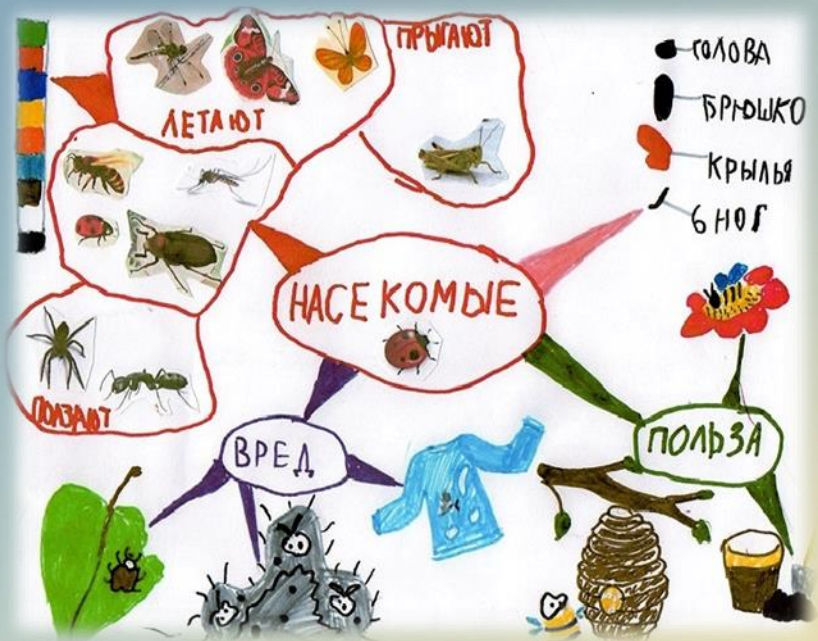 ПРЫГАЮТ
ЛЕТАЮТ
ГОЛОВА
БРЮШКО
КРЫЛЬЯ
6 НОГ
НАСЕКОМЫЕ
ПОЛЗАЮТ
ВРЕД
ПОЛЬЗА